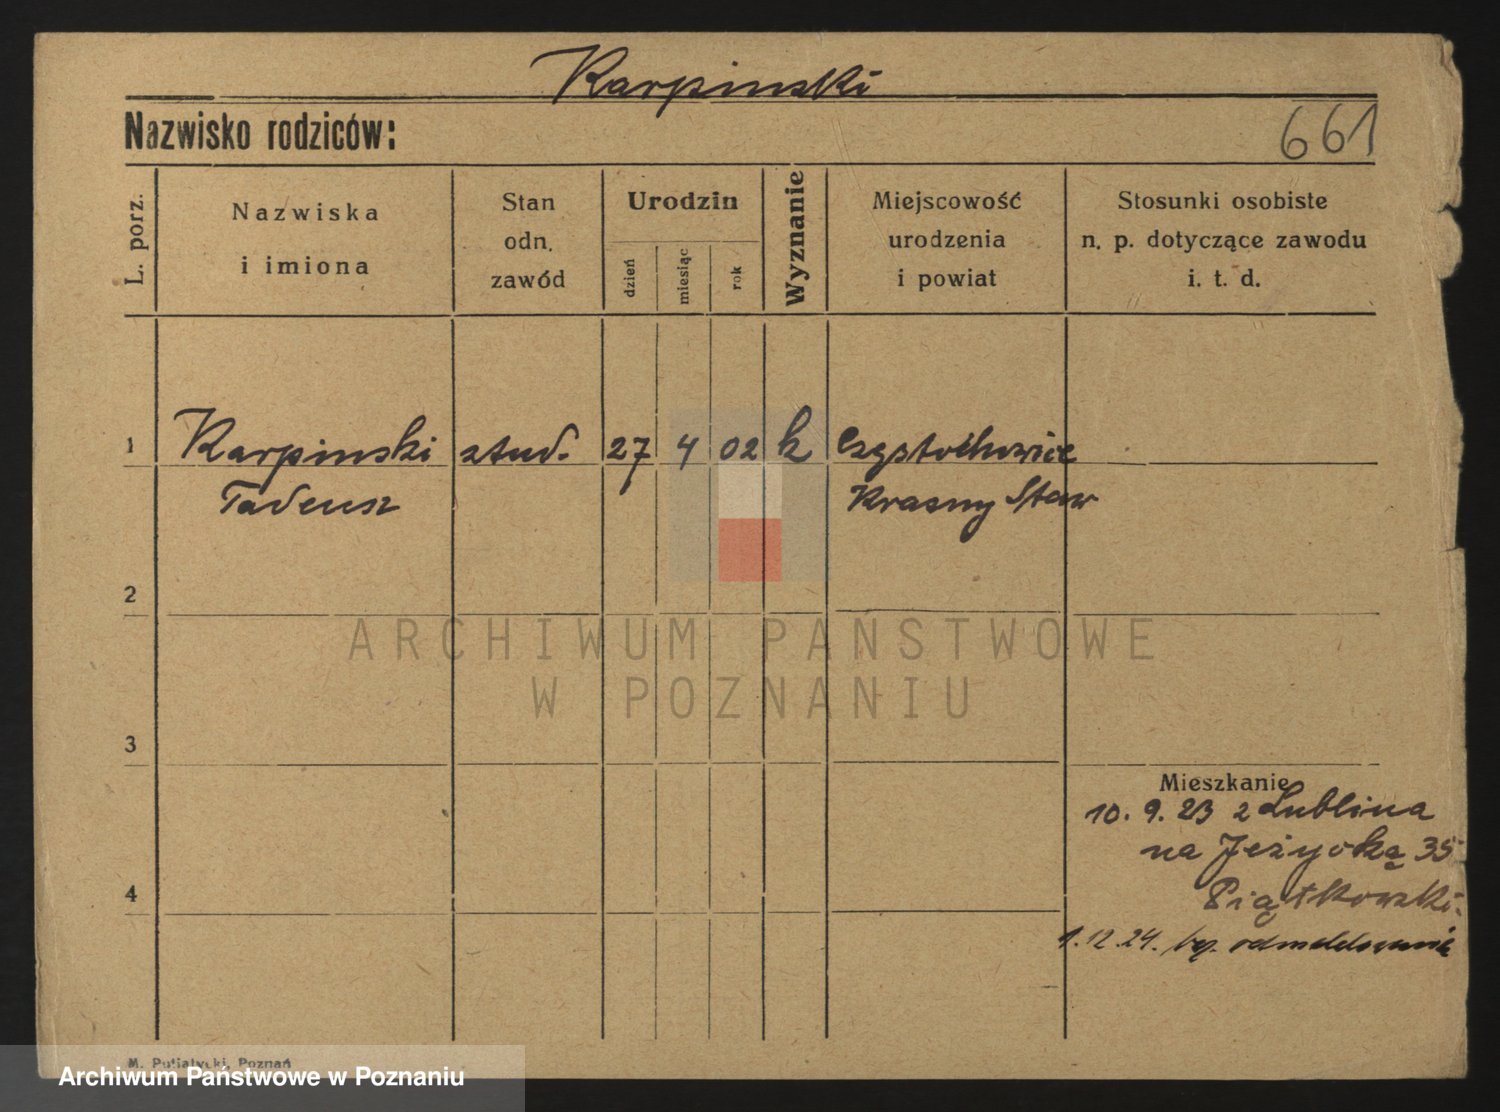 Karpinski
Nazwisko rodziców:
661
L. porz.
Nazwiska
i imiona
Stan
odn.
zawód
Urodzin
dzień
miesiąc
rok
Wyznanie
Miejscowość
urodzenia
i powiat
Stosunki osobiste
n. p. dotyczące zawodu
i. t. d.
1 Karpinski stud. 27 4 02 k
Tadeusz Krasny Staw
2
ARCHIWUM PAŃSTWOWE
W POZNANIU
3
Mieszkanie
10. 9. 23 z Lublina
na Jeżycką 35
Piątkowski.
4
1.12.24.
M. Putiatycki, Poznań
Archiwum Państwowe w Poznaniu